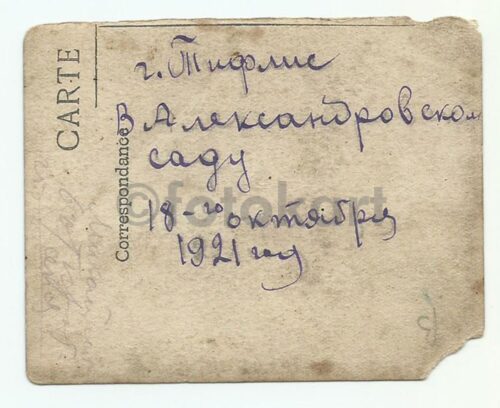 г. Тифлис
В Александровском
саду
18-го октября
1921 год
CARTE
Correspondance
©fotokart